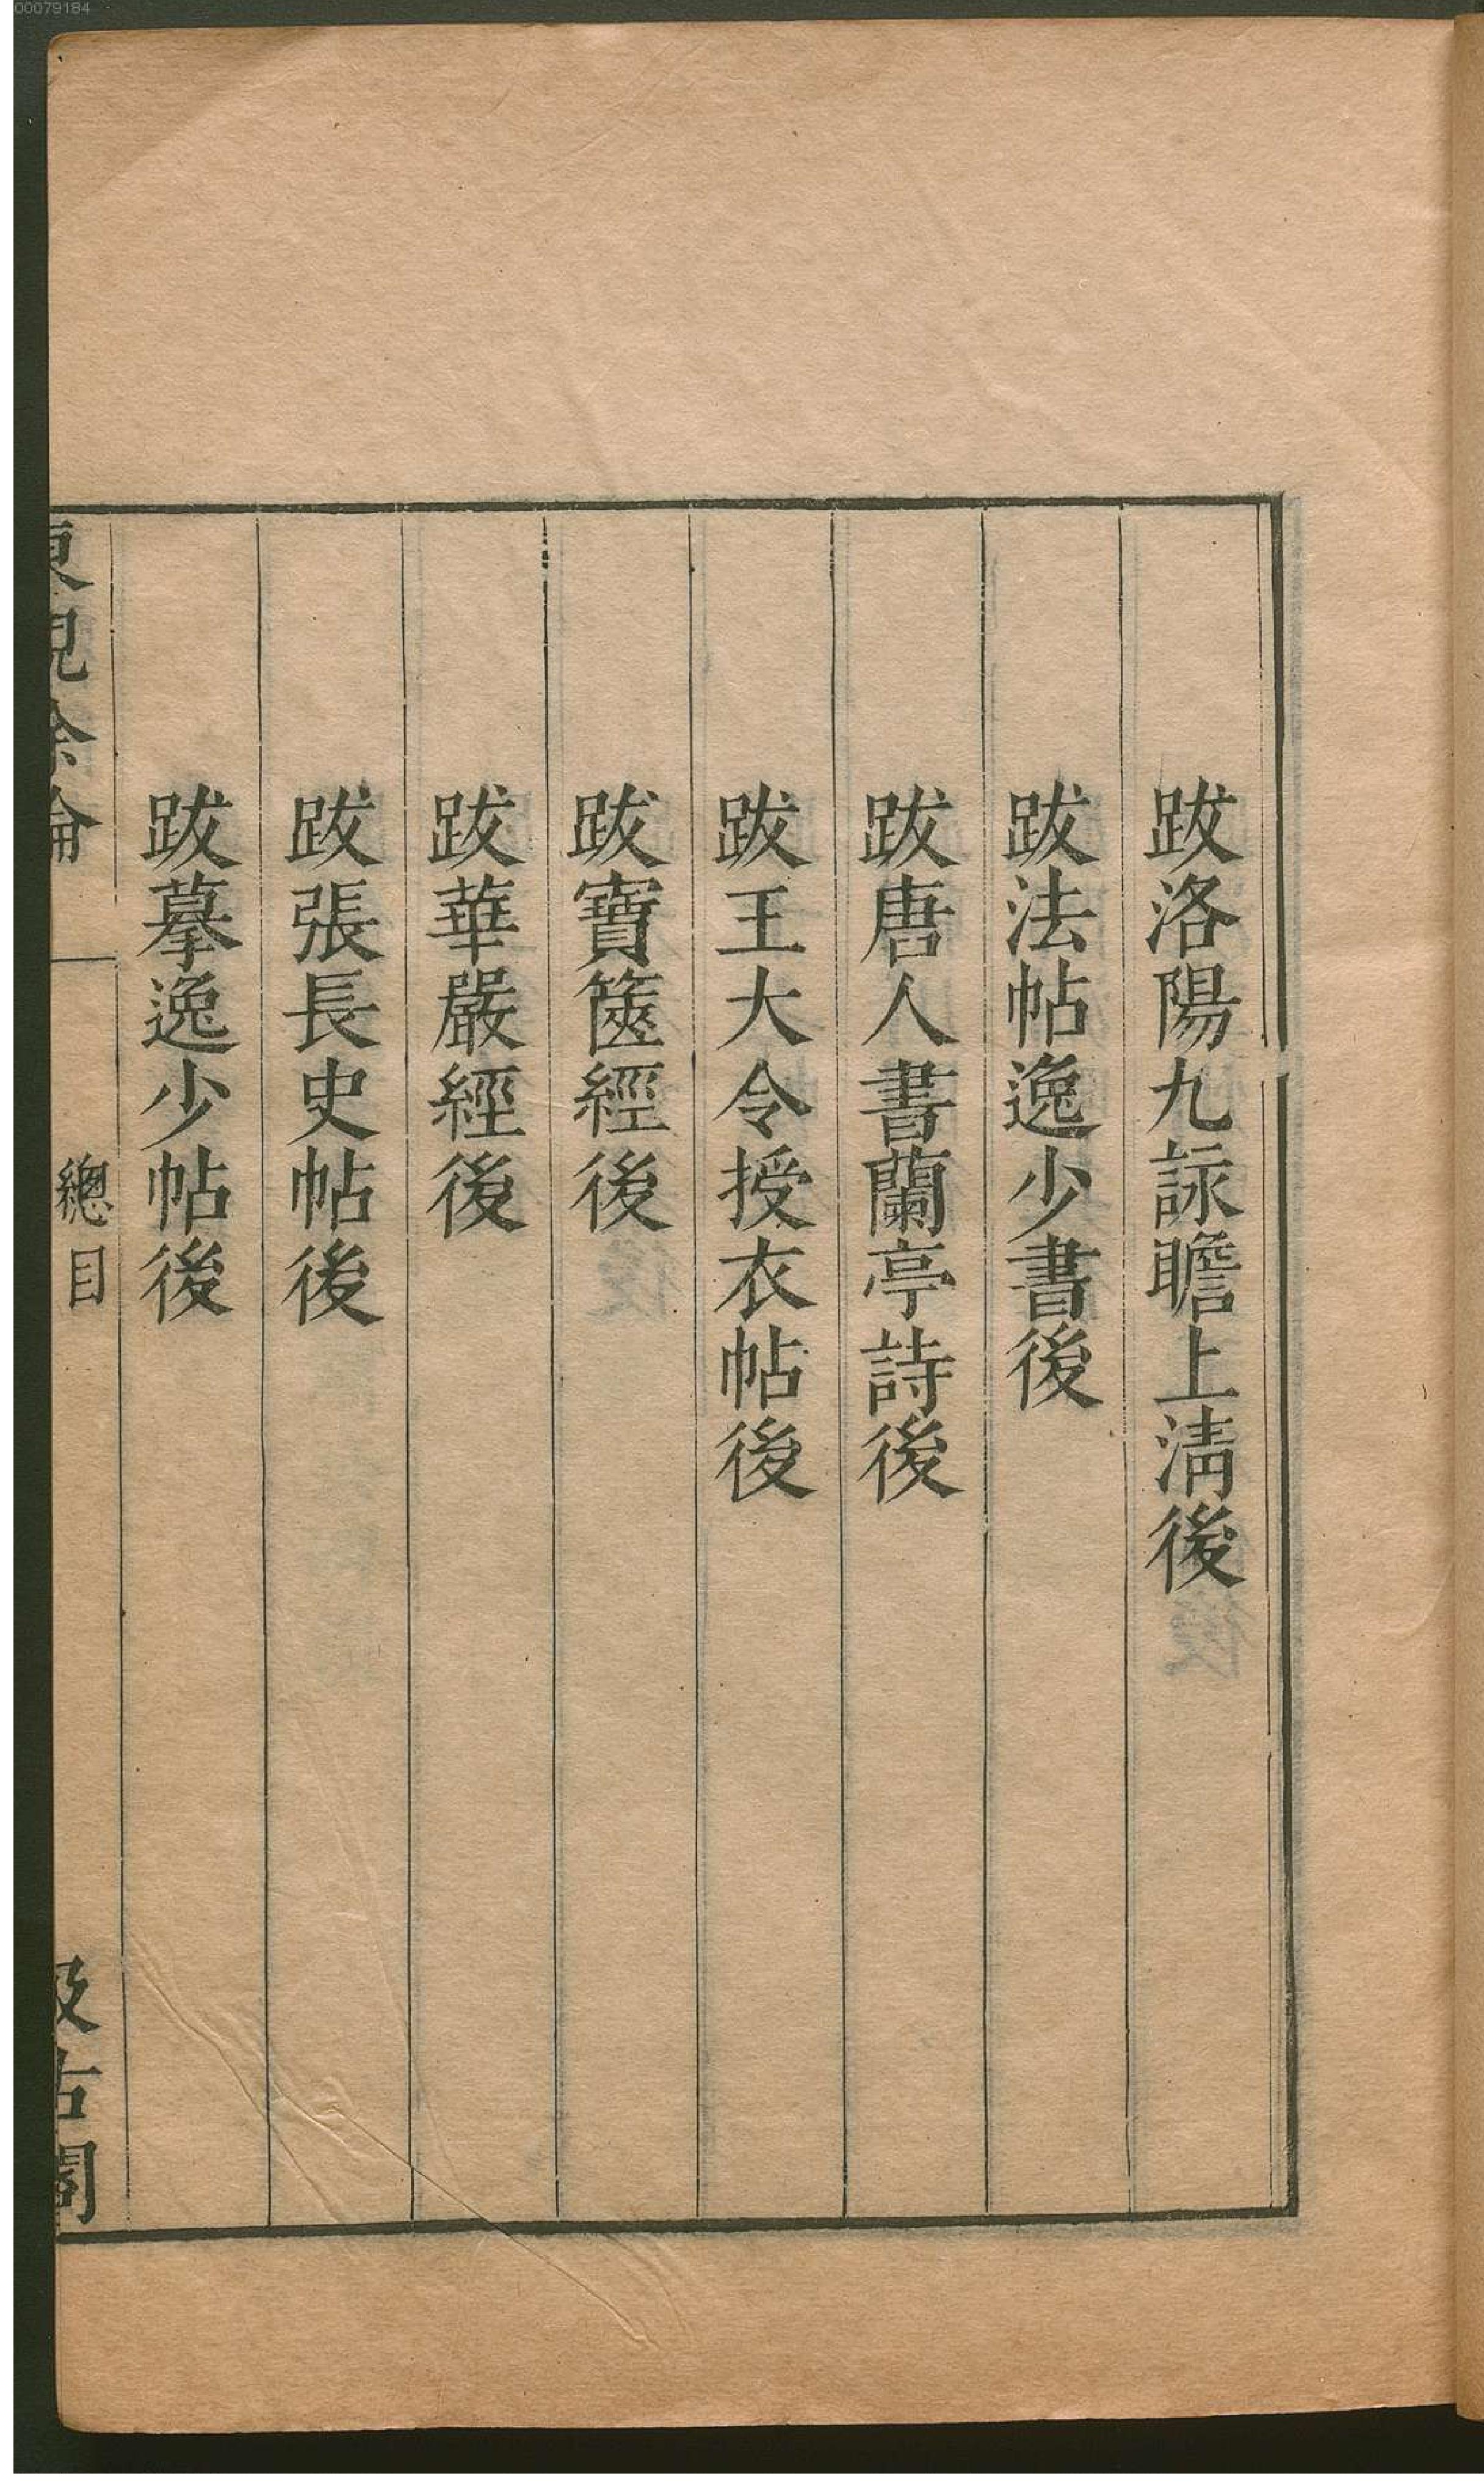 00079184
跋洛陽九詠瞻上淸後
跋法帖逸少書後
跋唐人書蘭亭詩後
跋王大令授衣帖後
跋寶篋經後
跋華嚴經後
跋張長史帖後
跋摹逸少帖後
東觀餘論
總目
汲古閣